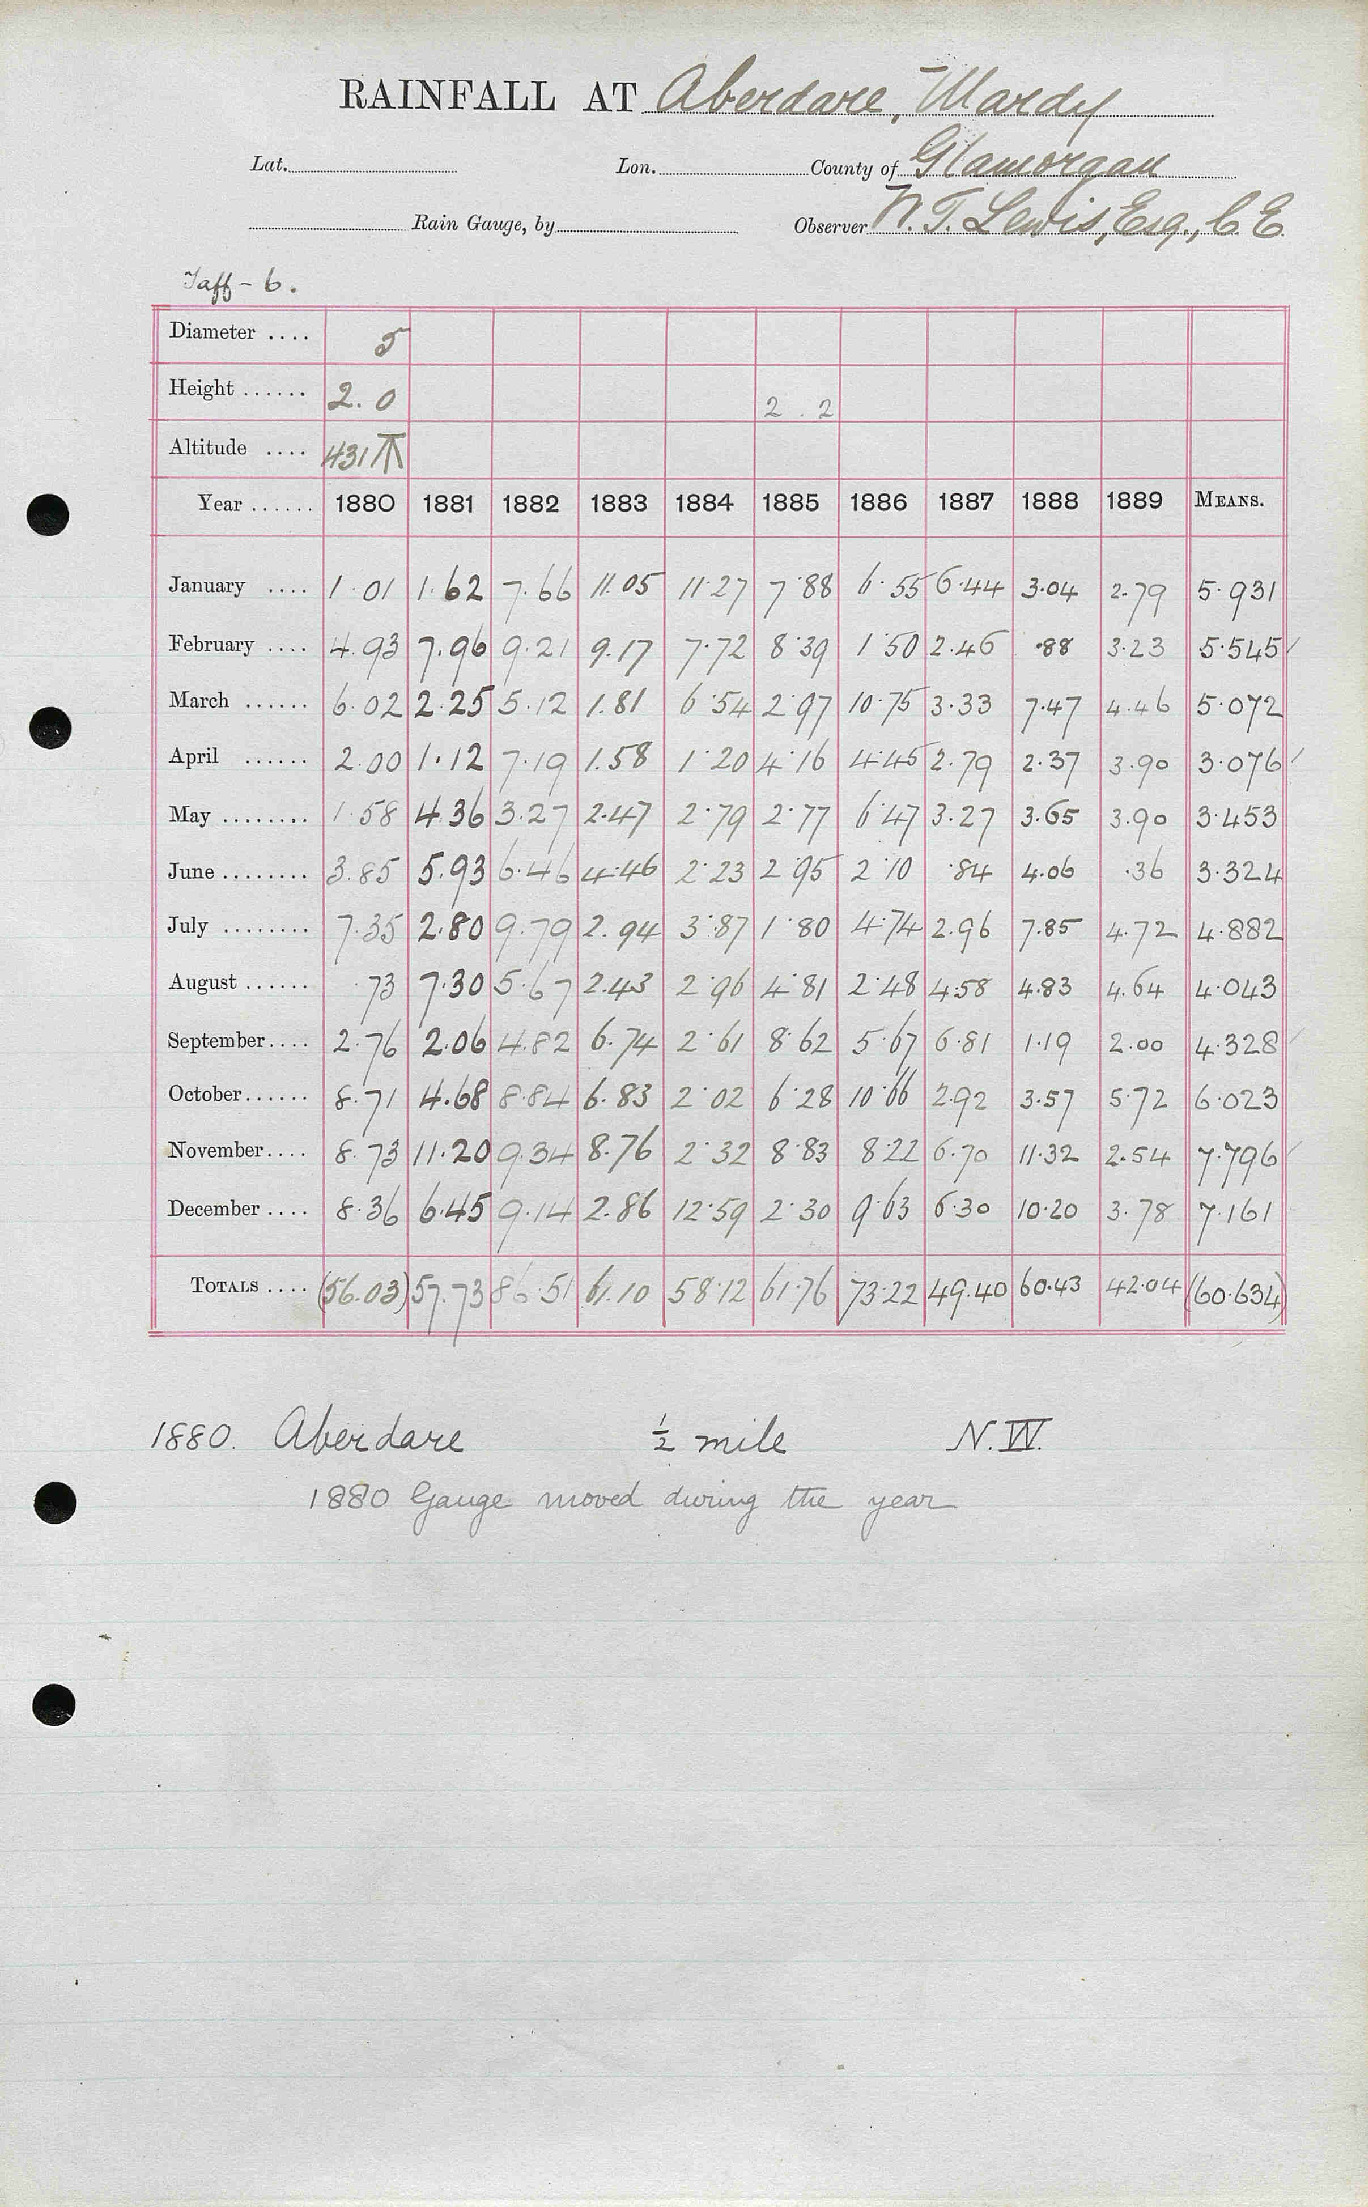 RAINFALL AT Aberdare, Mardy
Lat. Lon. County of Glamorgan
Rain Gauge, by Observer W. T. Lewis, Esq., C.E.
Taff - 6.
Diameter .... 5
Height ...... 2.0 2.2
Altitude .... 431
Year ...... 1880 1881 1882 1883 1884 1885 1886 1887 1888 1889 MEANS.
January .... 1.01 1.62 7.66 11.05 11.27 7.88 6.55 6.44 3.04 2.79 5.931
February .... 4.93 7.96 9.21 9.17 7.72 8.39 1.50 2.46 .88 3.23 5.545
March ...... 6.02 2.25 5.12 1.81 6.54 2.97 10.75 3.33 7.47 4.46 5.072
April ...... 2.00 1.12 7.19 1.58 1.20 4.16 4.45 2.79 2.37 3.90 3.076
May ........ 1.58 4.36 3.27 2.47 2.79 2.77 6.47 3.27 3.65 3.90 3.453
June ........ 3.85 5.93 6.46 4.46 2.23 2.95 2.10 .84 4.06 .36 3.324
July ........ 7.35 2.80 9.79 2.94 3.87 1.80 4.74 2.96 7.85 4.72 4.882
August ...... .73 7.30 5.67 2.43 2.96 4.81 2.48 4.58 4.83 4.64 4.043
September.... 2.76 2.06 4.82 6.74 2.61 8.62 5.67 6.81 1.19 2.00 4.328
October...... 8.71 4.68 8.84 6.83 2.02 6.28 10.66 2.92 3.57 5.72 6.023
November.... 8.73 11.20 9.34 8.76 2.32 8.83 8.22 6.70 11.32 2.54 7.796
December .... 8.36 6.45 9.14 2.86 12.59 2.30 9.63 6.30 10.20 3.78 7.161
TOTALS .... (56.03) 57.73 86.51 61.10 58.12 61.76 73.22 49.40 60.43 42.04 (60.634)
1880. Aberdare ½ mile N.W.
1880 Gauge moved during the year